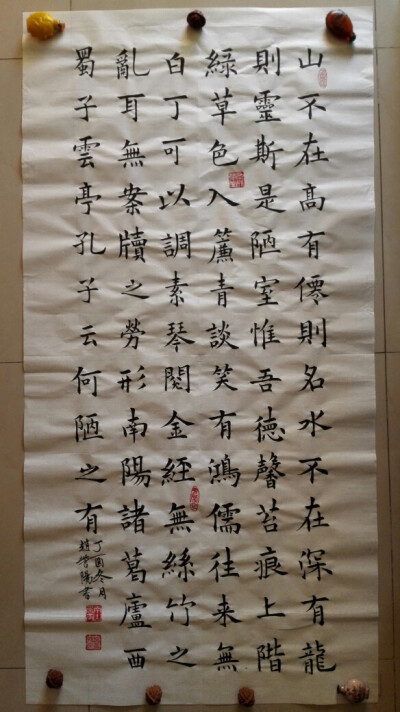 山不在高有僊則名水不在深有龍
則靈斯是陋室惟吾德馨苔痕上階
綠草色入簾青談笑有鴻儒往来無
白丁可以調素琴閱金經無絲竹之
亂耳無案牘之勞形南陽諸葛廬西
蜀子雲亭孔子云何陋之有
丁酉冬月
趙書